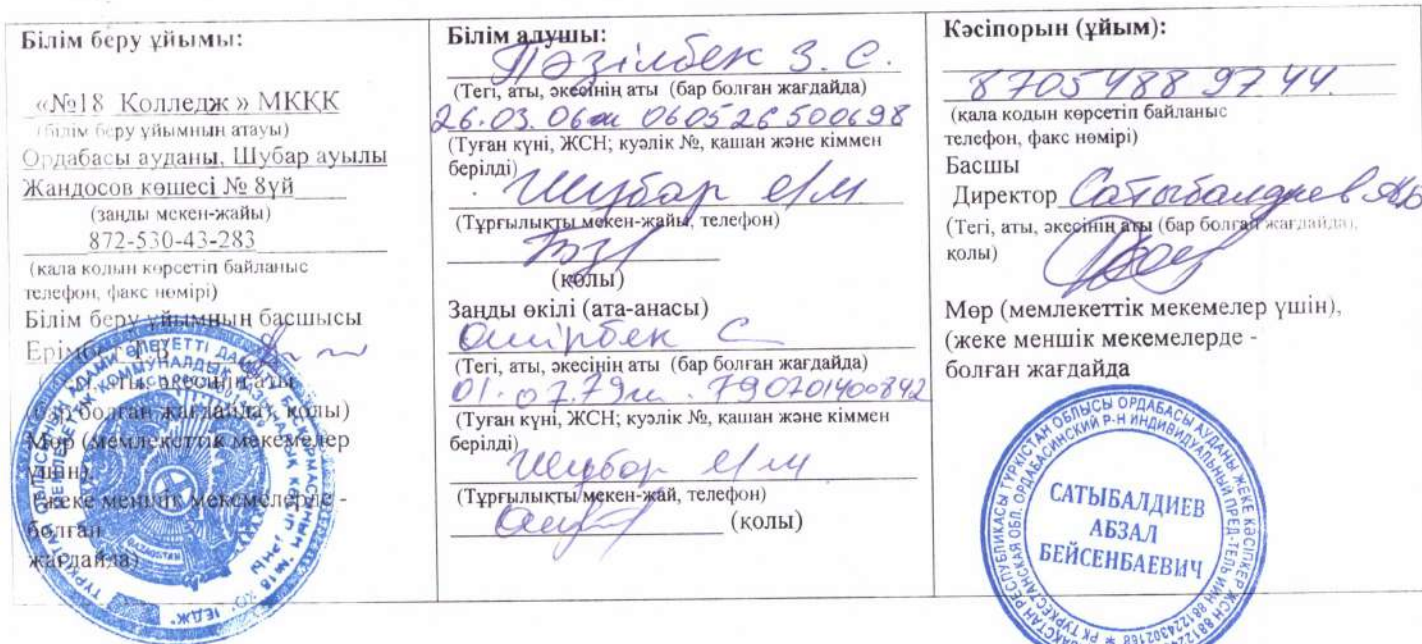 Білім беру ұйымы:
«№18 Колледж » МКҚК
(білім беру ұйымның атауы)
Ордабасы ауданы, Шубар ауылы
Жандосов көшесі № 8үй
(заңды мекен-жайы)
872-530-43-283
(қала кодын көрсетіп байланыс
телефон, факс нөмірі)
Білім беру ұйымның басшысы
(Тегі, аты, әкесінің аты
(бар болған жағдайда), қолы)
Мөр (мемлекеттік мекемелер
үшін),
(жеке меншік мекемелерде -
болған
жағдайда)
Білім алушы:
Пәзілбек З. С.
(Тегі, аты, әкесінің аты (бар болған жағдайда)
26.03.06 060526500698
(Туған күні, ЖСН; куәлік №, қашан және кіммен
берілді)
Шубар е/м
(Тұрғылықты мекен-жайы, телефон)
(қолы)
Заңды өкілі (ата-анасы)
Әшірбек С
(Тегі, аты, әкесінің аты (бар болған жағдайда)
01.07.79 790701400842
(Туған күні, ЖСН; куәлік №, қашан және кіммен
берілді)
Шубар е/м
(Тұрғылықты мекен-жай, телефон)
(қолы)
Кәсіпорын (ұйым):
8705 488 97 44.
(қала кодын көрсетіп байланыс
телефон, факс нөмірі)
Басшы
Директор Сатыбалдиев АБ
(Тегі, аты, әкесінің аты (бар болған жағдайда),
қолы)
Мөр (мемлекеттік мекемелер үшін),
(жеке меншік мекемелерде -
болған жағдайда
САТЫБАЛДИЕВ
АБЗАЛ
БЕЙСЕНБАЕВИЧ